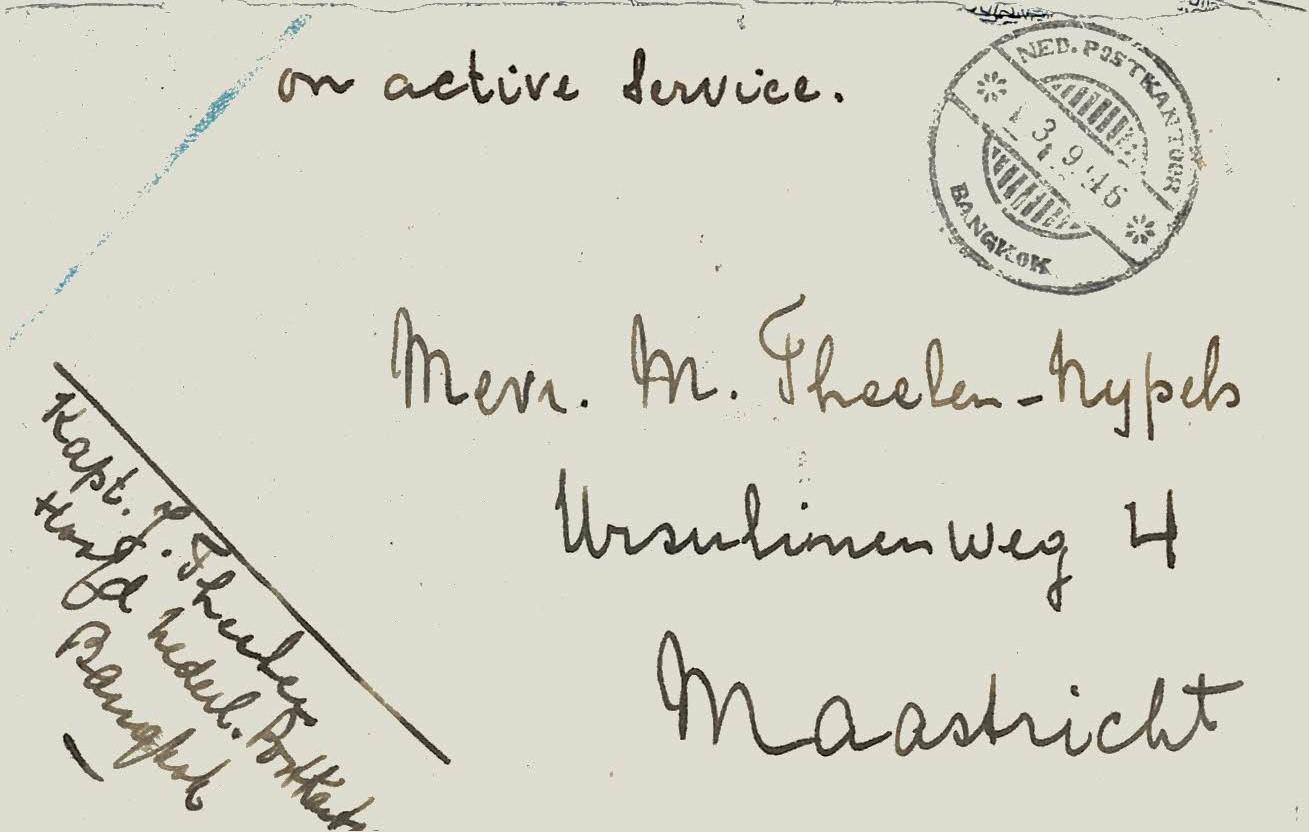 on active Service.
NED. POSTKANTOOR
3.9.46
BANGKOK
Mevr. M. Theelen-Nypels
Ursulinenweg 4
Maastricht
Kapt. J. Theelen
Hoofd Nederl. Postkant
Bangkok